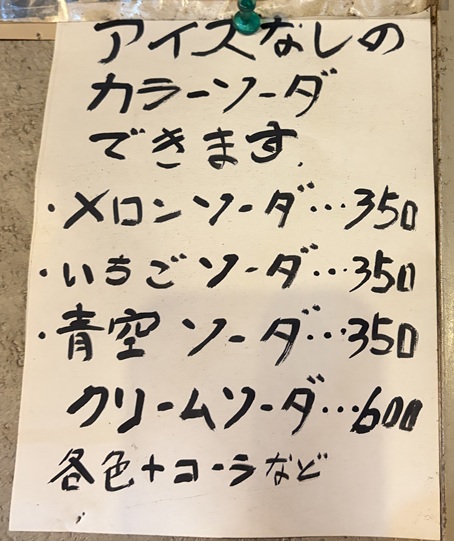 アイスなしの
カラーソーダ
できます.
・メロンソーダ…350
・いちごソーダ…350
・青空ソーダ…350
クリームソーダ…600
各色+コーラなど